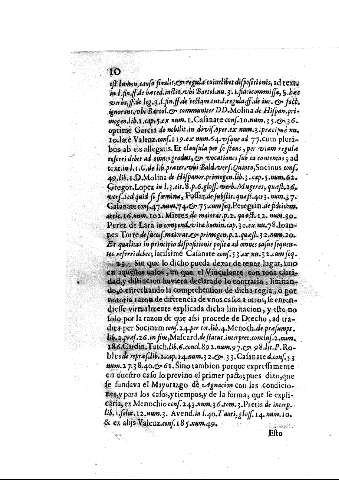 10
est bonus, causa finalis, & regula cuiuslibet dispositionis, ad text.
in l. fin. ff. de hæred. instit. vbi Bartol. nu. 3. l. sita commissa, §. hæc
verba, ff. de leg. 3. l. fin. ff. de testam. tut. regula ff. de iur. & fact.
ignorant. vbi Bartol. & communiter DD. Molina de Hispan. pri-
mogen. lib. 1. cap. 5. ex num. 1. Casanate conf. 10. num. 35. & 36.
optimè Garcia de nobilit. in divis. oper. ex num. 3. præcipuè nu.
10. latè Valenz. conf. 119. ex num. 64. vsque ad 77. cum pluri-
bus ab eis allegatis. Et clausula per se stans, per viam regulæ
referri debet ad omnes gradus, & vocationes sub ea contentas; ad
text. in l. 1. C. de lib. præter. vbi Bald. vers. Quæro, Socinus conf.
49. lib. 1. D. Molina de Hispan. primogen. lib. 3. cap. 5. num. 62.
Gregor. Lopez in l. 3. tit. 8. p. 6. gloss. verb. Mugeres, quæst. 26.
vers. sed quid si fœmina, Pollaz. de substit. quæst. 403. num. 47.
Casanate conf. 47. num. 74. & 75. conf. 54. Peregrin. de fideicom.
artic. 16. num. 102. Mieres de maiorat. p. 2. quæst. 12. num. 30.
Perez de Lara in compend. vitæ homin. cap. 30. ex nu. 78. Ioan-
nes Torre de succes. maiorat. & primogen. p. 1. quæst. 32. num. 20.
Et qualitas in principio dispositionis posita ad omnes casus sequen-
tes referri debet; latissimè Casanate conf. 53. ex nu. 32. cum seq.
23. Sin que lo dicho pueda dexar de tener lugar, sino
en aquellos casos, en que el Vinculante con toda clari-
dad, y distincion huviera declarado lo contrario, limitan-
do, ò estrechando la comprehension de dicha regla, ò por
notoria razon de diferencia de vnos casos à otros, se enten-
diesse virtualmente explicada dicha limitacion, y esto no
solo por la razon de que assi procede de Drecho, ad tra-
dita per Socinum conf. 24. por tot. lib. 4. Menoch. de præsumpt.
lib. 2. præs. 26. in fin. Mascard. de statut. interpret. concl. 2. num.
186. Cardin. Tusch. lib. 6. concl. 102. num. 97. & 98. lit. P. Ro-
bles de repræs. lib. 2. cap. 24. num. 32. & 33. Casanate d. conf. 53
num. 27. 38. 40. & 61. Sino tambien porque expressamente
en nuestro caso lo previno el primer pacto, pues dize, que
se fundava el Mayorazgo de Agnacion con las condicio-
nes, y para los casos, y tiempos, y de la forma, que se expli-
caria, ex Menochio conf. 243. num. 36. num. 3. Prætis de interp.
lib. 1. solut. 12. num. 3. Avend. in l. 40. Tauri, gloss. 14. num. 10.
& ex alijs Valenz. conf. 185. num. 49.
Esto